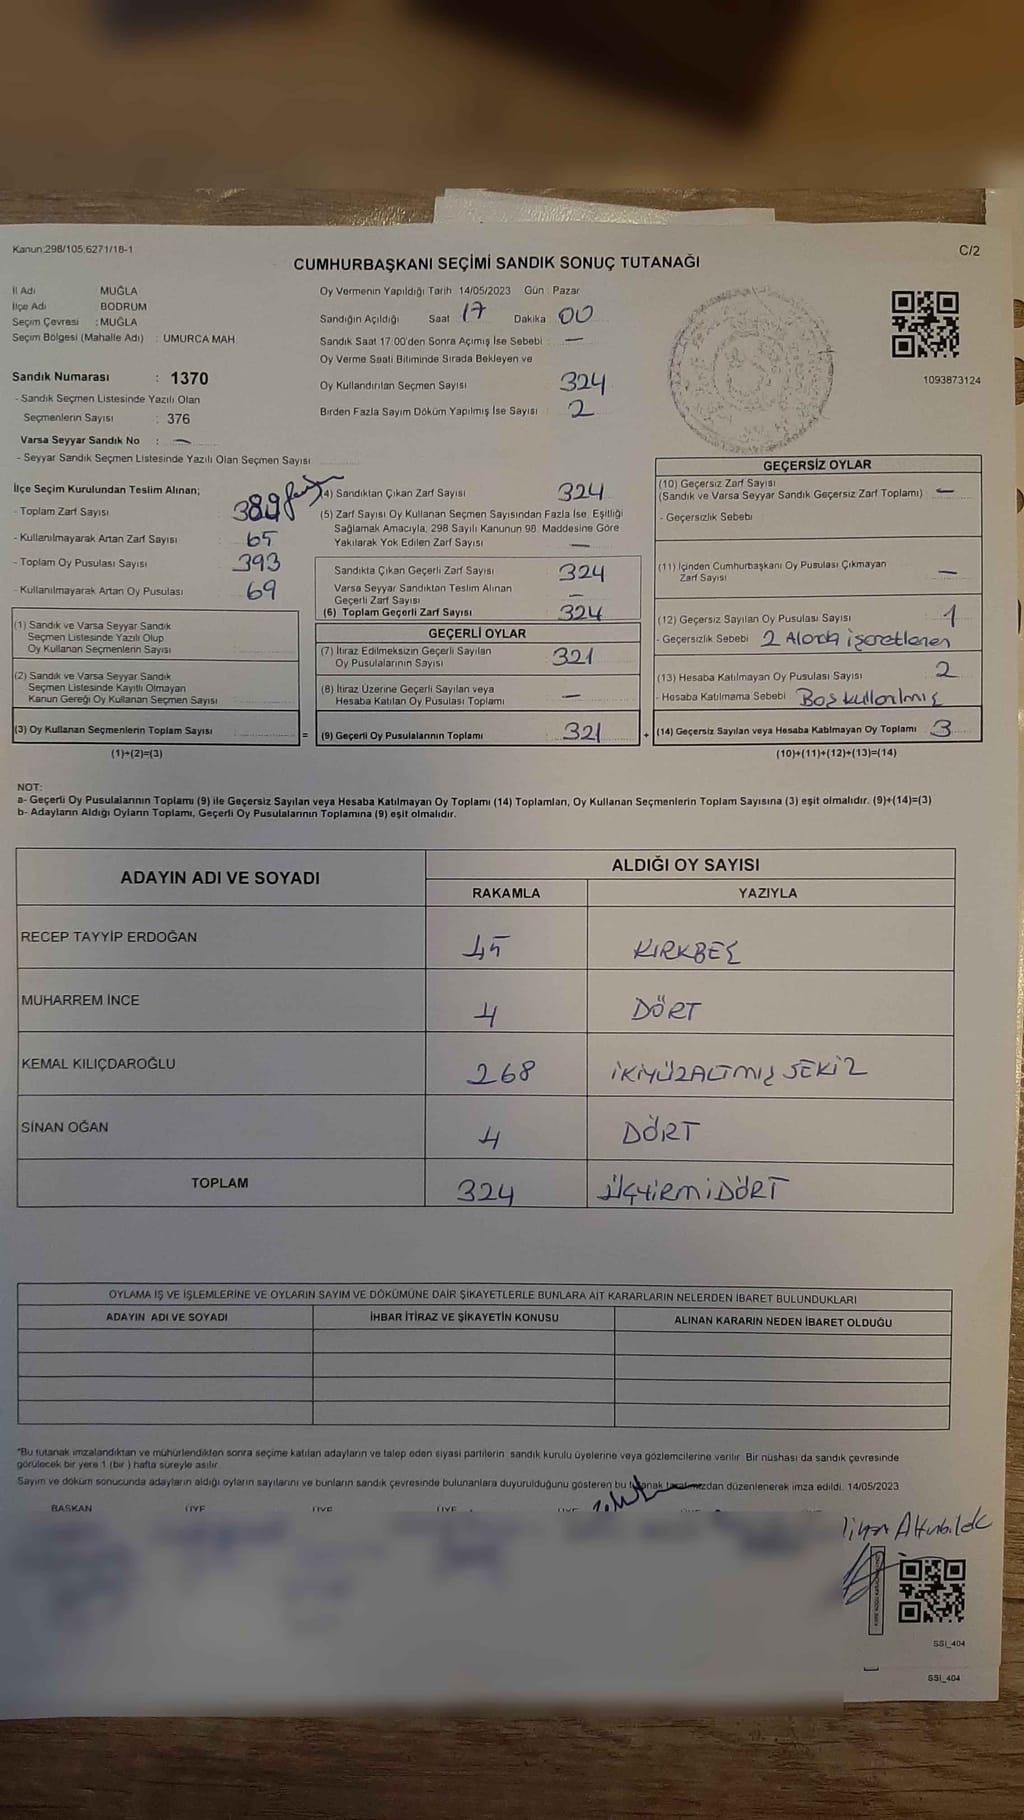 Kanun:298/105,6271/18-1
C/2
CUMHURBAŞKANI SEÇİMİ SANDIK SONUÇ TUTANAĞI
İl Adı MUĞLA
İlçe Adı BODRUM
Seçim Çevresi : MUĞLA
Seçim Bölgesi (Mahalle Adı) : UMURCA MAH.
Sandık Numarası : 1370
- Sandık Seçmen Listesinde Yazılı Olan
Seçmenlerin Sayısı : 376
Varsa Seyyar Sandık No : —
- Seyyar Sandık Seçmen Listesinde Yazılı Olan Seçmen Sayısı
Oy Vermenin Yapıldığı Tarih 14/05/2023 Gün : Pazar
Sandığın Açıldığı Saat 17 Dakika 00
Sandık Saat 17:00'den Sonra Açımış İse Sebebi : —
Oy Verme Saati Bitiminde Sırada Bekleyen ve
Oy Kullandırılan Seçmen Sayısı 324
Birden Fazla Sayım Döküm Yapılmış İse Sayısı : 2
1093873124
İlçe Seçim Kurulundan Teslim Alınan;
- Toplam Zarf Sayısı 389
- Kullanılmayarak Artan Zarf Sayısı : 65
- Toplam Oy Pusulası Sayısı : 393
- Kullanılmayarak Artan Oy Pusulası : 69
(1) Sandık ve Varsa Seyyar Sandık
Seçmen Listesinde Yazılı Olup
Oy Kullanan Seçmenlerin Sayısı :
(2) Sandık ve Varsa Seyyar Sandık
Seçmen Listesinde Kayıtlı Olmayan
Kanun Gereği Oy Kullanan Seçmen Sayısı :
(3) Oy Kullanan Seçmenlerin Toplam Sayısı =
(1)+(2)=(3)
(4) Sandıktan Çıkan Zarf Sayısı : 324
(5) Zarf Sayısı Oy Kullanan Seçmen Sayısından Fazla İse, Eşitliği
Sağlamak Amacıyla, 298 Sayılı Kanunun 98. Maddesine Göre
Yakılarak Yok Edilen Zarf Sayısı : —
Sandıkta Çıkan Geçerli Zarf Sayısı : 324
Varsa Seyyar Sandıktan Teslim Alınan
Geçerli Zarf Sayısı : —
(6) Toplam Geçerli Zarf Sayısı : 324
GEÇERLİ OYLAR
(7) İtiraz Edilmeksizin Geçerli Sayılan
Oy Pusulalarının Sayısı : 321
(8) İtiraz Üzerine Geçerli Sayılan veya
Hesaba Katılan Oy Pusulası Toplamı : —
(9) Geçerli Oy Pusulalarının Toplamı : 321 +
GEÇERSİZ OYLAR
(10) Geçersiz Zarf Sayısı
(Sandık ve Varsa Seyyar Sandık Geçersiz Zarf Toplamı) : —
- Geçersizlik Sebebi :
(11) İçinden Cumhurbaşkanı Oy Pusulası Çıkmayan
Zarf Sayısı : —
(12) Geçersiz Sayılan Oy Pusulası Sayısı : 1
- Geçersizlik Sebebi : 2 Alanda işaretlenen
(13) Hesaba Katılmayan Oy Pusulası Sayısı : 2
- Hesaba Katılmama Sebebi : Boş kullanılmış
(14) Geçersiz Sayılan veya Hesaba Katılmayan Oy Toplamı : 3
(10)+(11)+(12)+(13)=(14)
NOT:
a- Geçerli Oy Pusulalarının Toplamı (9) ile Geçersiz Sayılan veya Hesaba Katılmayan Oy Toplamı (14) Toplamları, Oy Kullanan Seçmenlerin Toplam Sayısına (3) eşit olmalıdır. (9)+(14)=(3)
b- Adayların Aldığı Oyların Toplamı, Geçerli Oy Pusulalarının Toplamına (9) eşit olmalıdır.
ADAYIN ADI VE SOYADI ALDIĞI OY SAYISI
RAKAMLA YAZIYLA
RECEP TAYYİP ERDOĞAN 45 KIRKBEŞ
MUHARREM İNCE 4 DÖRT
KEMAL KILIÇDAROĞLU 268 İKİYÜZALTMIŞ SEKİZ
SİNAN OĞAN 4 DÖRT
TOPLAM 324 ÜÇYİRMİDÖRT
OYLAMA İŞ VE İŞLEMLERİNE VE OYLARIN SAYIM VE DÖKÜMÜNE DAİR ŞİKAYETLERLE BUNLARA AİT KARARLARIN NELERDEN İBARET BULUNDUKLARI
ADAYIN ADI VE SOYADI İHBAR İTİRAZ VE ŞİKAYETİN KONUSU ALINAN KARARIN NEDEN İBARET OLDUĞU
*Bu tutanak imzalandıktan ve mühürlendikten sonra seçime katılan adayların ve talep eden siyasi partilerin sandık kurulu üyelerine veya gözlemcilerine verilir. Bir nüshası da sandık çevresinde
görülecek bir yere 1 (bir) hafta süreyle asılır.
Sayım ve döküm sonucunda adayların aldığı oyların sayılarını ve bunların sandık çevresinde bulunanlara duyurulduğunu gösteren bu tutanak tarafımızdan düzenlenerek imza edildi. 14/05/2023
BAŞKAN ÜYE ÜYE ÜYE ÜYE
Altınbilek
SSİ_404
SSİ_404